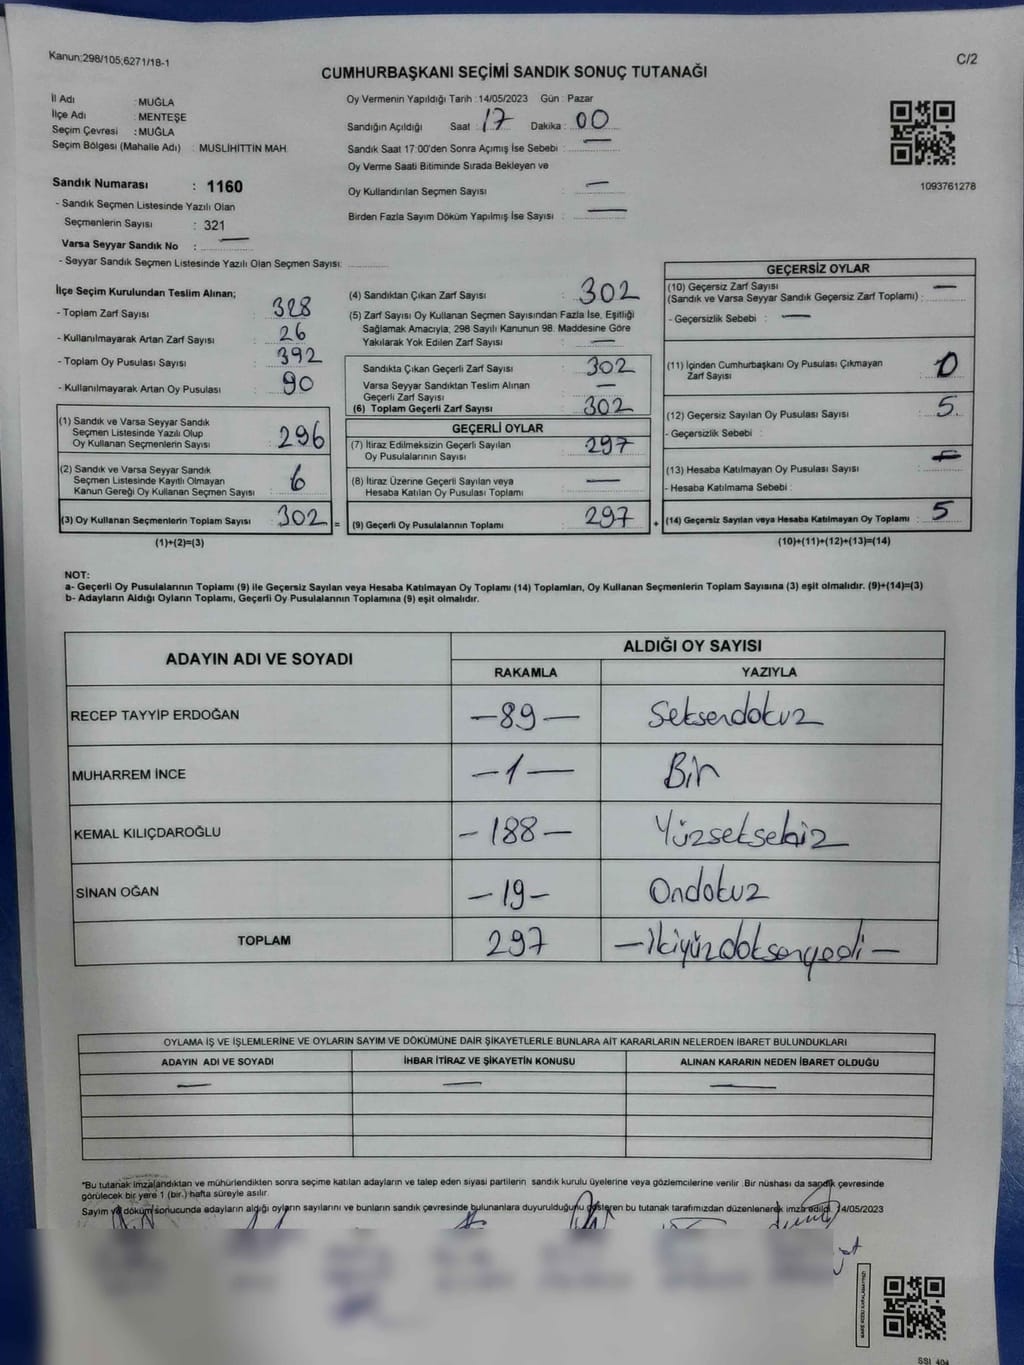 Kanun;298/105;6271/18-1
C/2
CUMHURBAŞKANI SEÇİMİ SANDIK SONUÇ TUTANAĞI
İl Adı : MUĞLA
İlçe Adı : MENTEŞE
Seçim Çevresi : MUĞLA
Seçim Bölgesi (Mahalle Adı) : MUSLİHİTTİN MAH.
Sandık Numarası : 1160
- Sandık Seçmen Listesinde Yazılı Olan
Seçmenlerin Sayısı : 321
Varsa Seyyar Sandık No : —
- Seyyar Sandık Seçmen Listesinde Yazılı Olan Seçmen Sayısı:
Oy Vermenin Yapıldığı Tarih : 14/05/2023 Gün : Pazar
Sandığın Açıldığı Saat : 17 Dakika : 00
Sandık Saat 17:00'den Sonra Açımış İse Sebebi : —
Oy Verme Saati Bitiminde Sırada Bekleyen ve
Oy Kullandırılan Seçmen Sayısı : —
Birden Fazla Sayım Döküm Yapılmış İse Sayısı : —
1093761278
İlçe Seçim Kurulundan Teslim Alınan;
- Toplam Zarf Sayısı : 328
- Kullanılmayarak Artan Zarf Sayısı : 26
- Toplam Oy Pusulası Sayısı : 392
- Kullanılmayarak Artan Oy Pusulası : 90
(1) Sandık ve Varsa Seyyar Sandık
Seçmen Listesinde Yazılı Olup
Oy Kullanan Seçmenlerin Sayısı : 296
(2) Sandık ve Varsa Seyyar Sandık
Seçmen Listesinde Kayıtlı Olmayan
Kanun Gereği Oy Kullanan Seçmen Sayısı : 6
(3) Oy Kullanan Seçmenlerin Toplam Sayısı : 302 =
(1)+(2)=(3)
(4) Sandıktan Çıkan Zarf Sayısı : 302
(5) Zarf Sayısı Oy Kullanan Seçmen Sayısından Fazla İse, Eşitliği
Sağlamak Amacıyla; 298 Sayılı Kanunun 98. Maddesine Göre
Yakılarak Yok Edilen Zarf Sayısı : —
Sandıkta Çıkan Geçerli Zarf Sayısı : 302
Varsa Seyyar Sandıktan Teslim Alınan
Geçerli Zarf Sayısı : —
(6) Toplam Geçerli Zarf Sayısı : 302
GEÇERLİ OYLAR
(7) İtiraz Edilmeksizin Geçerli Sayılan
Oy Pusulalarının Sayısı : 297
(8) İtiraz Üzerine Geçerli Sayılan veya
Hesaba Katılan Oy Pusulası Toplamı : —
(9) Geçerli Oy Pusulalarının Toplamı : 297 +
GEÇERSİZ OYLAR
(10) Geçersiz Zarf Sayısı
(Sandık ve Varsa Seyyar Sandık Geçersiz Zarf Toplamı) : —
- Geçersizlik Sebebi : —
(11) İçinden Cumhurbaşkanı Oy Pusulası Çıkmayan
Zarf Sayısı : 0
(12) Geçersiz Sayılan Oy Pusulası Sayısı : 5
- Geçersizlik Sebebi :
(13) Hesaba Katılmayan Oy Pusulası Sayısı :
- Hesaba Katılmama Sebebi :
(14) Geçersiz Sayılan veya Hesaba Katılmayan Oy Toplamı : 5
(10)+(11)+(12)+(13)=(14)
NOT:
a- Geçerli Oy Pusulalarının Toplamı (9) ile Geçersiz Sayılan veya Hesaba Katılmayan Oy Toplamı (14) Toplamları, Oy Kullanan Seçmenlerin Toplam Sayısına (3) eşit olmalıdır. (9)+(14)=(3)
b- Adayların Aldığı Oyların Toplamı, Geçerli Oy Pusulalarının Toplamına (9) eşit olmalıdır.
ADAYIN ADI VE SOYADI
ALDIĞI OY SAYISI
RAKAMLA YAZIYLA
RECEP TAYYİP ERDOĞAN —89— Seksendokuz
MUHARREM İNCE —1— Bir
KEMAL KILIÇDAROĞLU —188— Yüzseksekiz
SİNAN OĞAN —19— Ondokuz
TOPLAM 297 —İkiyüzdoksanyedi—
OYLAMA İŞ VE İŞLEMLERİNE VE OYLARIN SAYIM VE DÖKÜMÜNE DAİR ŞİKAYETLERLE BUNLARA AİT KARARLARIN NELERDEN İBARET BULUNDUKLARI
ADAYIN ADI VE SOYADI İHBAR İTİRAZ VE ŞİKAYETİN KONUSU ALINAN KARARIN NEDEN İBARET OLDUĞU
— — —
*Bu tutanak imzalandıktan ve mühürlendikten sonra seçime katılan adayların ve talep eden siyasi partilerin sandık kurulu üyelerine veya gözlemcilerine verilir .Bir nüshası da sandık çevresinde
görülecek bir yere 1 (bir.) hafta süreyle asılır.
Sayım ve döküm sonucunda adayların aldığı oyların sayılarını ve bunların sandık çevresinde bulunanlara duyurulduğunu gösteren bu tutanak tarafımızdan düzenlenerek imza edildi. 14/05/2023
KARE KODU KARALAMAYINIZ!
SSI_404